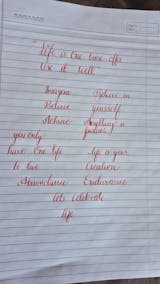 "Life is one time offer
Use it well
Imagine Believe in
Believe yourself
Achieve Anything is
possible!
you only
have One life life is your
to live Creation
Abundance Endurance
Lets Celebrate
life